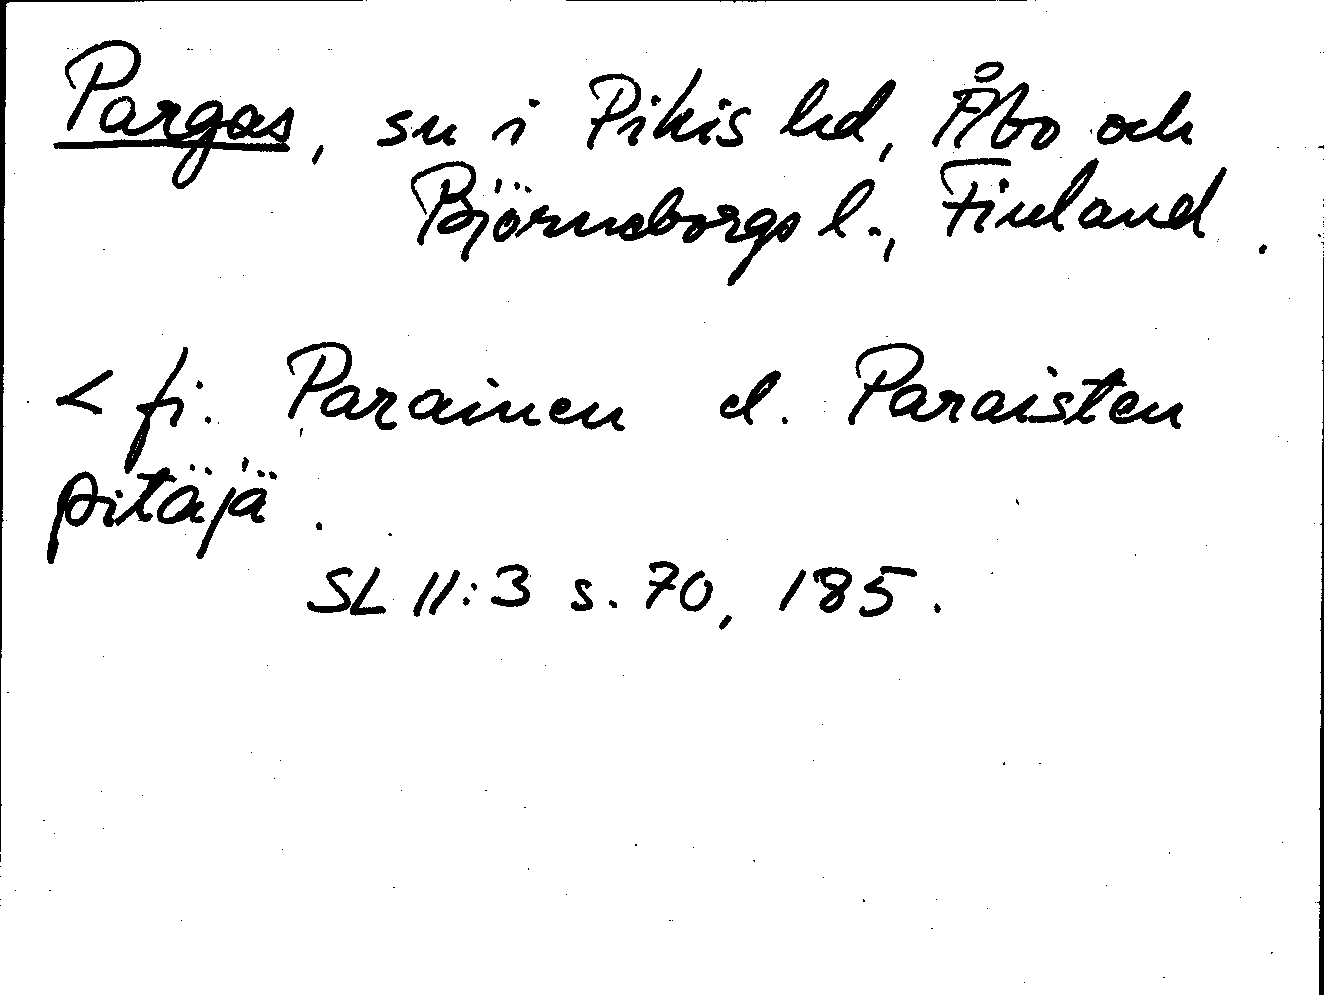 Pargas, sn i Pikis hd, Åbo och
Björneborgs l., Finland.
< fi. Parainen el. Paraisten
pitäjä.
SL 11:3 s. 70, 185.